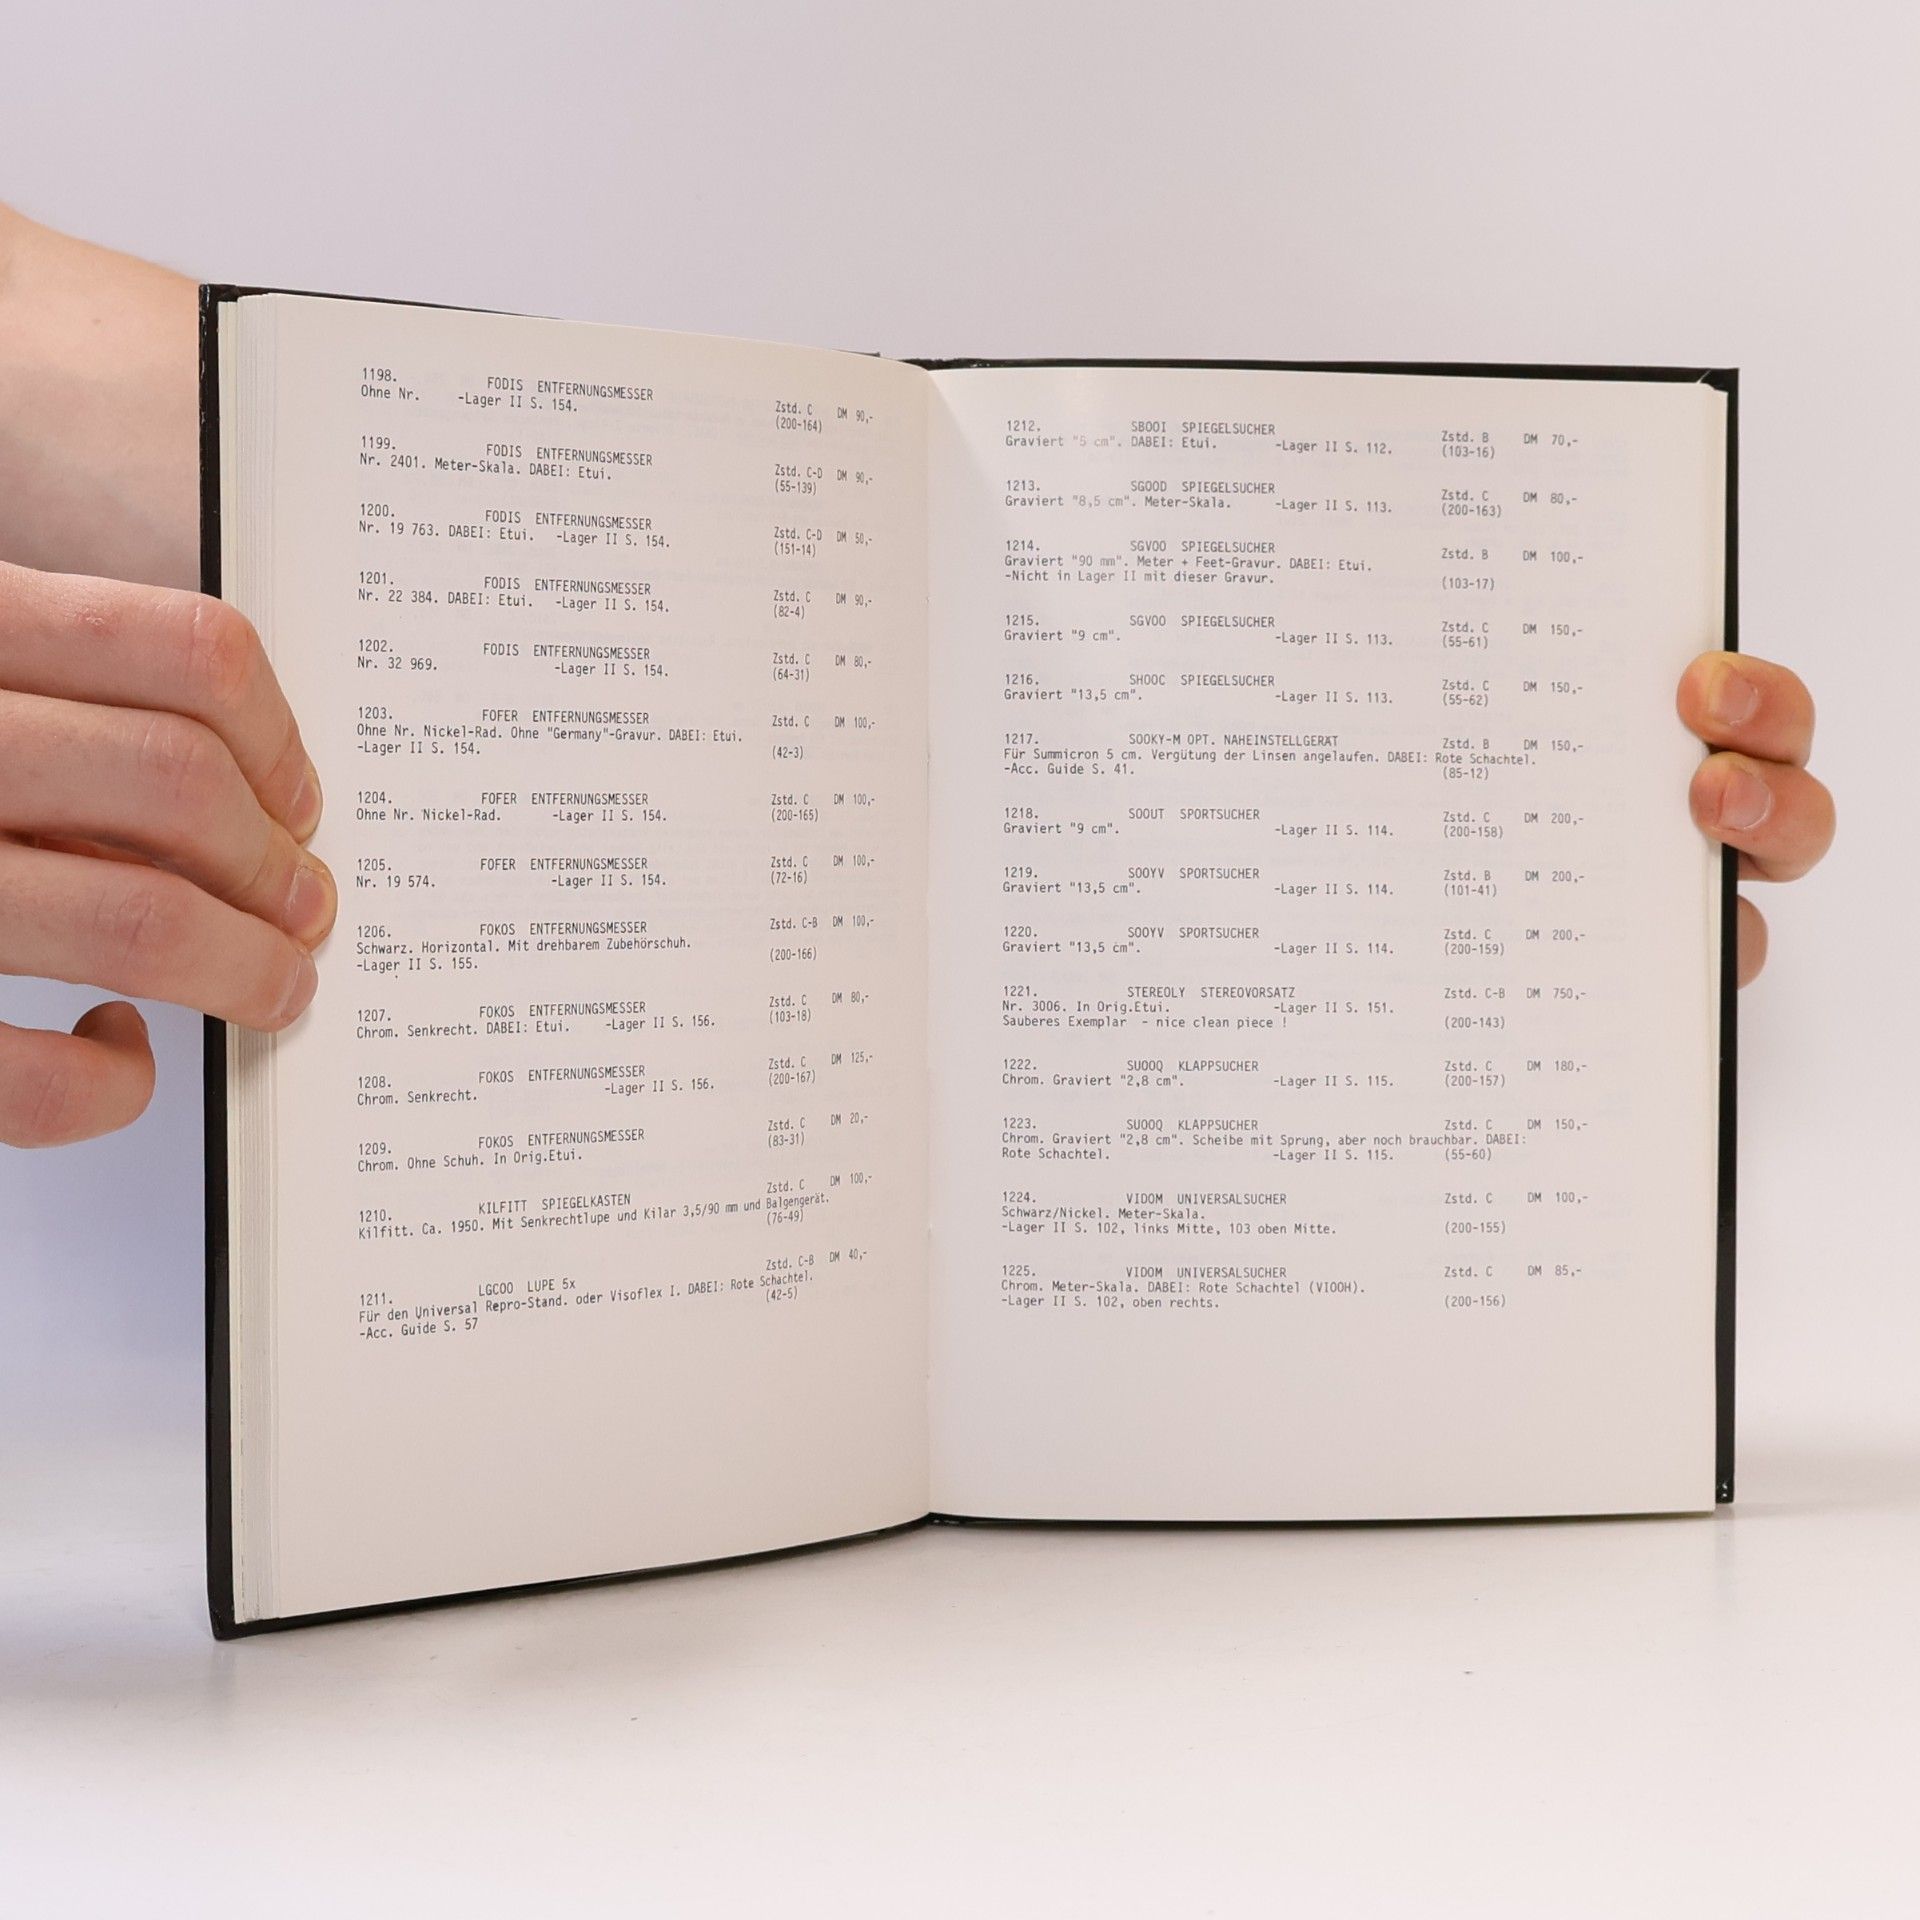 1198. FODIS ENTFERNUNGSMESSER
Ohne Nr. -Lager II S. 154. Zstd. C DM 90,-
(200-164)
1199. FODIS ENTFERNUNGSMESSER
Nr. 2401. Meter-Skala. DABEI: Etui. Zstd. C-D DM 90,-
(55-139)
1200. FODIS ENTFERNUNGSMESSER
Nr. 19 763. DABEI: Etui. -Lager II S. 154. Zstd. C-D DM 50,-
(151-14)
1201. FODIS ENTFERNUNGSMESSER
Nr. 22 384. DABEI: Etui. -Lager II S. 154. Zstd. C DM 90,-
(82-4)
1202. FODIS ENTFERNUNGSMESSER
Nr. 32 969. -Lager II S. 154. Zstd. C DM 80,-
(64-31)
1203. FOFER ENTFERNUNGSMESSER Zstd. C DM 100,-
Ohne Nr. Nickel-Rad. Ohne "Germany"-Gravur. DABEI: Etui.
-Lager II S. 154. (42-3)
1204. FOFER ENTFERNUNGSMESSER Zstd. C DM 100,-
Ohne Nr. Nickel-Rad. -Lager II S. 154. (200-165)
1205. FOFER ENTFERNUNGSMESSER Zstd. C DM 100,-
Nr. 19 574. -Lager II S. 154. (72-16)
1206. FOKOS ENTFERNUNGSMESSER Zstd. C-B DM 100,-
Schwarz. Horizontal. Mit drehbarem Zubehörschuh.
-Lager II S. 155. (200-166)
1207. FOKOS ENTFERNUNGSMESSER Zstd. C DM 80,-
Chrom. Senkrecht. DABEI: Etui. -Lager II S. 156. (103-18)
1208. FOKOS ENTFERNUNGSMESSER Zstd. C DM 125,-
Chrom. Senkrecht. -Lager II S. 156. (200-167)
1209. FOKOS ENTFERNUNGSMESSER Zstd. C DM 20,-
Chrom. Ohne Schuh. In Orig.Etui. (83-31)
1210. KILFITT SPIEGELKASTEN Zstd. C DM 100,-
Kilfitt. Ca. 1950. Mit Senkrechtlupe und Kilar 3,5/90 mm und Balgengerät.
(76-49)
1211. LGCOO LUPE 5x Zstd. C-B DM 40,-
Für den Universal Repro-Stand. oder Visoflex I. DABEI: Rote Schachtel.
-Acc. Guide S. 57 (42-5)
1212. SBOOI SPIEGELSUCHER Zstd. B DM 70,-
Graviert "5 cm". DABEI: Etui. -Lager II S. 112. (103-16)
1213. SGOOD SPIEGELSUCHER Zstd. C DM 80,-
Graviert "8,5 cm". Meter-Skala. -Lager II S. 113. (200-163)
1214. SGVOO SPIEGELSUCHER Zstd. B DM 100,-
Graviert "90 mm". Meter + Feet-Gravur. DABEI: Etui.
-Nicht in Lager II mit dieser Gravur. (103-17)
1215. SGVOO SPIEGELSUCHER Zstd. C DM 150,-
Graviert "9 cm". -Lager II S. 113. (55-61)
1216. SHOOC SPIEGELSUCHER Zstd. C DM 150,-
Graviert "13,5 cm". -Lager II S. 113. (55-62)
1217. SOOKY-M OPT. NAHEINSTELLGERÄT Zstd. B DM 150,-
Für Summicron 5 cm. Vergütung der Linsen angelaufen. DABEI: Rote Schachtel.
-Acc. Guide S. 41. (85-12)
1218. SOOUT SPORTSUCHER Zstd. C DM 200,-
Graviert "9 cm". -Lager II S. 114. (200-158)
1219. SOOYV SPORTSUCHER Zstd. B DM 200,-
Graviert "13,5 cm". -Lager II S. 114. (101-41)
1220. SOOYV SPORTSUCHER Zstd. C DM 200,-
Graviert "13,5 cm". -Lager II S. 114. (200-159)
1221. STEREOLY STEREOVORSATZ Zstd. C-B DM 750,-
Nr. 3006. In Orig.Etui. -Lager II S. 151.
Sauberes Exemplar - nice clean piece ! (200-143)
1222. SUOOQ KLAPPSUCHER Zstd. C DM 180,-
Chrom. Graviert "2,8 cm". -Lager II S. 115. (200-157)
1223. SUOOQ KLAPPSUCHER Zstd. C DM 150,-
Chrom. Graviert "2,8 cm". Scheibe mit Sprung, aber noch brauchbar. DABEI:
Rote Schachtel. -Lager II S. 115. (55-60)
1224. VIDOM UNIVERSALSUCHER Zstd. C DM 100,-
Schwarz/Nickel. Meter-Skala.
-Lager II S. 102, links Mitte, 103 oben Mitte. (200-155)
1225. VIDOM UNIVERSALSUCHER Zstd. C DM 85,-
Chrom. Meter-Skala. DABEI: Rote Schachtel (VIOOH).
-Lager II S. 102, oben rechts. (200-156)